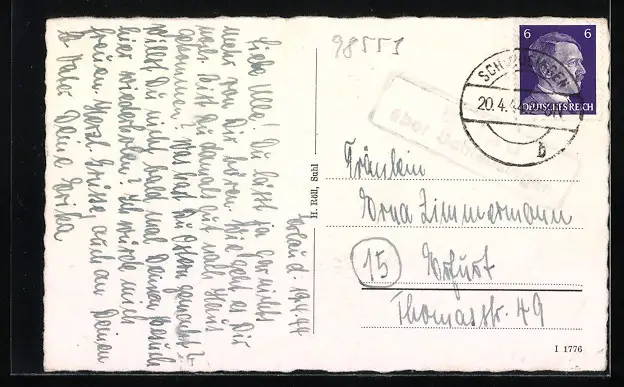 98553
6 6
DEUTSCHES REICH
SCHLEUSINGEN
20.4.44
b
über Schleusingen
H. Röll, Suhl
Fräulein
Erna Zimmermann
15 Erfurt
Thomasstr. 49
I 1776
19.4.44
Du läßt ja gar nichts
mehr von Dir hören. Wie geht es Dir
Bist Du damals gut nach Haus
gekommen? Was hast Du Ostern gemacht?
Willst Du nicht bald mal Deinen Besuch
hier wiederholen? Ich würde mich
freuen. Herzl. Grüße, auch an Deinen
Vater Deine Erika